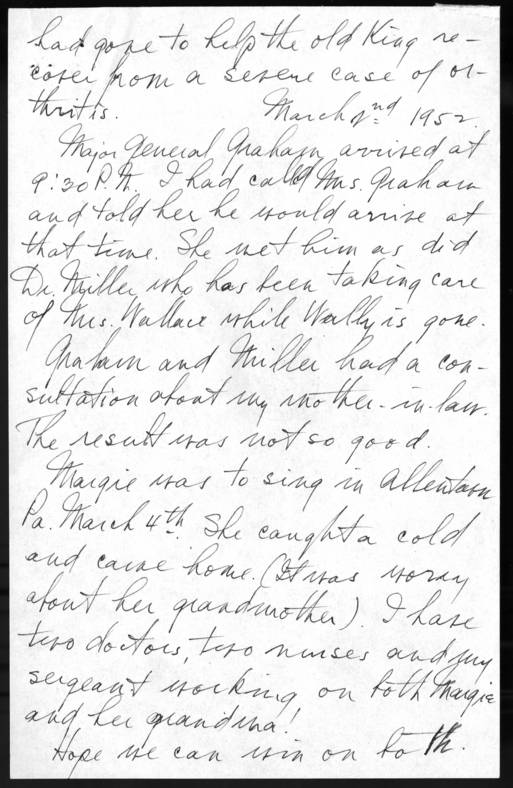 had gone to help the old King re-
cover from a severe case of ar-
thritis. March 2nd 1952.
Major General Graham arrived at
9:30 P.M. I had called Mrs. Graham
and told her he would arrive at
that time. She met him as did
Dr. Miller who has been taking care
of Mrs. Wallace while Wally is gone.
Graham and Miller had a con-
sultation about my mother-in-law.
The result was not so good.
Margie was to sing in Allentown
Pa. March 4th. She caught a cold
and came home. (It was worry
about her grandmother). I have
two doctors, two nurses and my
sergeant working on both Margie
and her grandma!
Hope we can win on both.